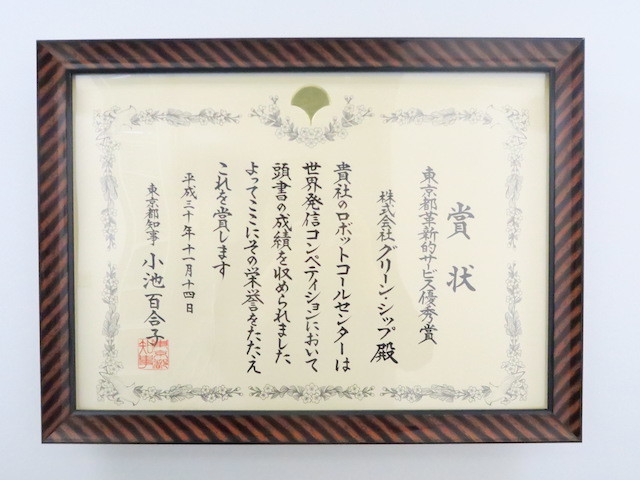 賞状
東京都革新的サービス優秀賞
株式会社グリーン・シップ殿
貴社のロボットコールセンターは
世界発信コンペティションにおいて
頭書の成績を収められました
よってここにその栄誉をたたえ
これを賞します
平成三十年十一月十四日
東京都知事 小池百合子
東京都知事